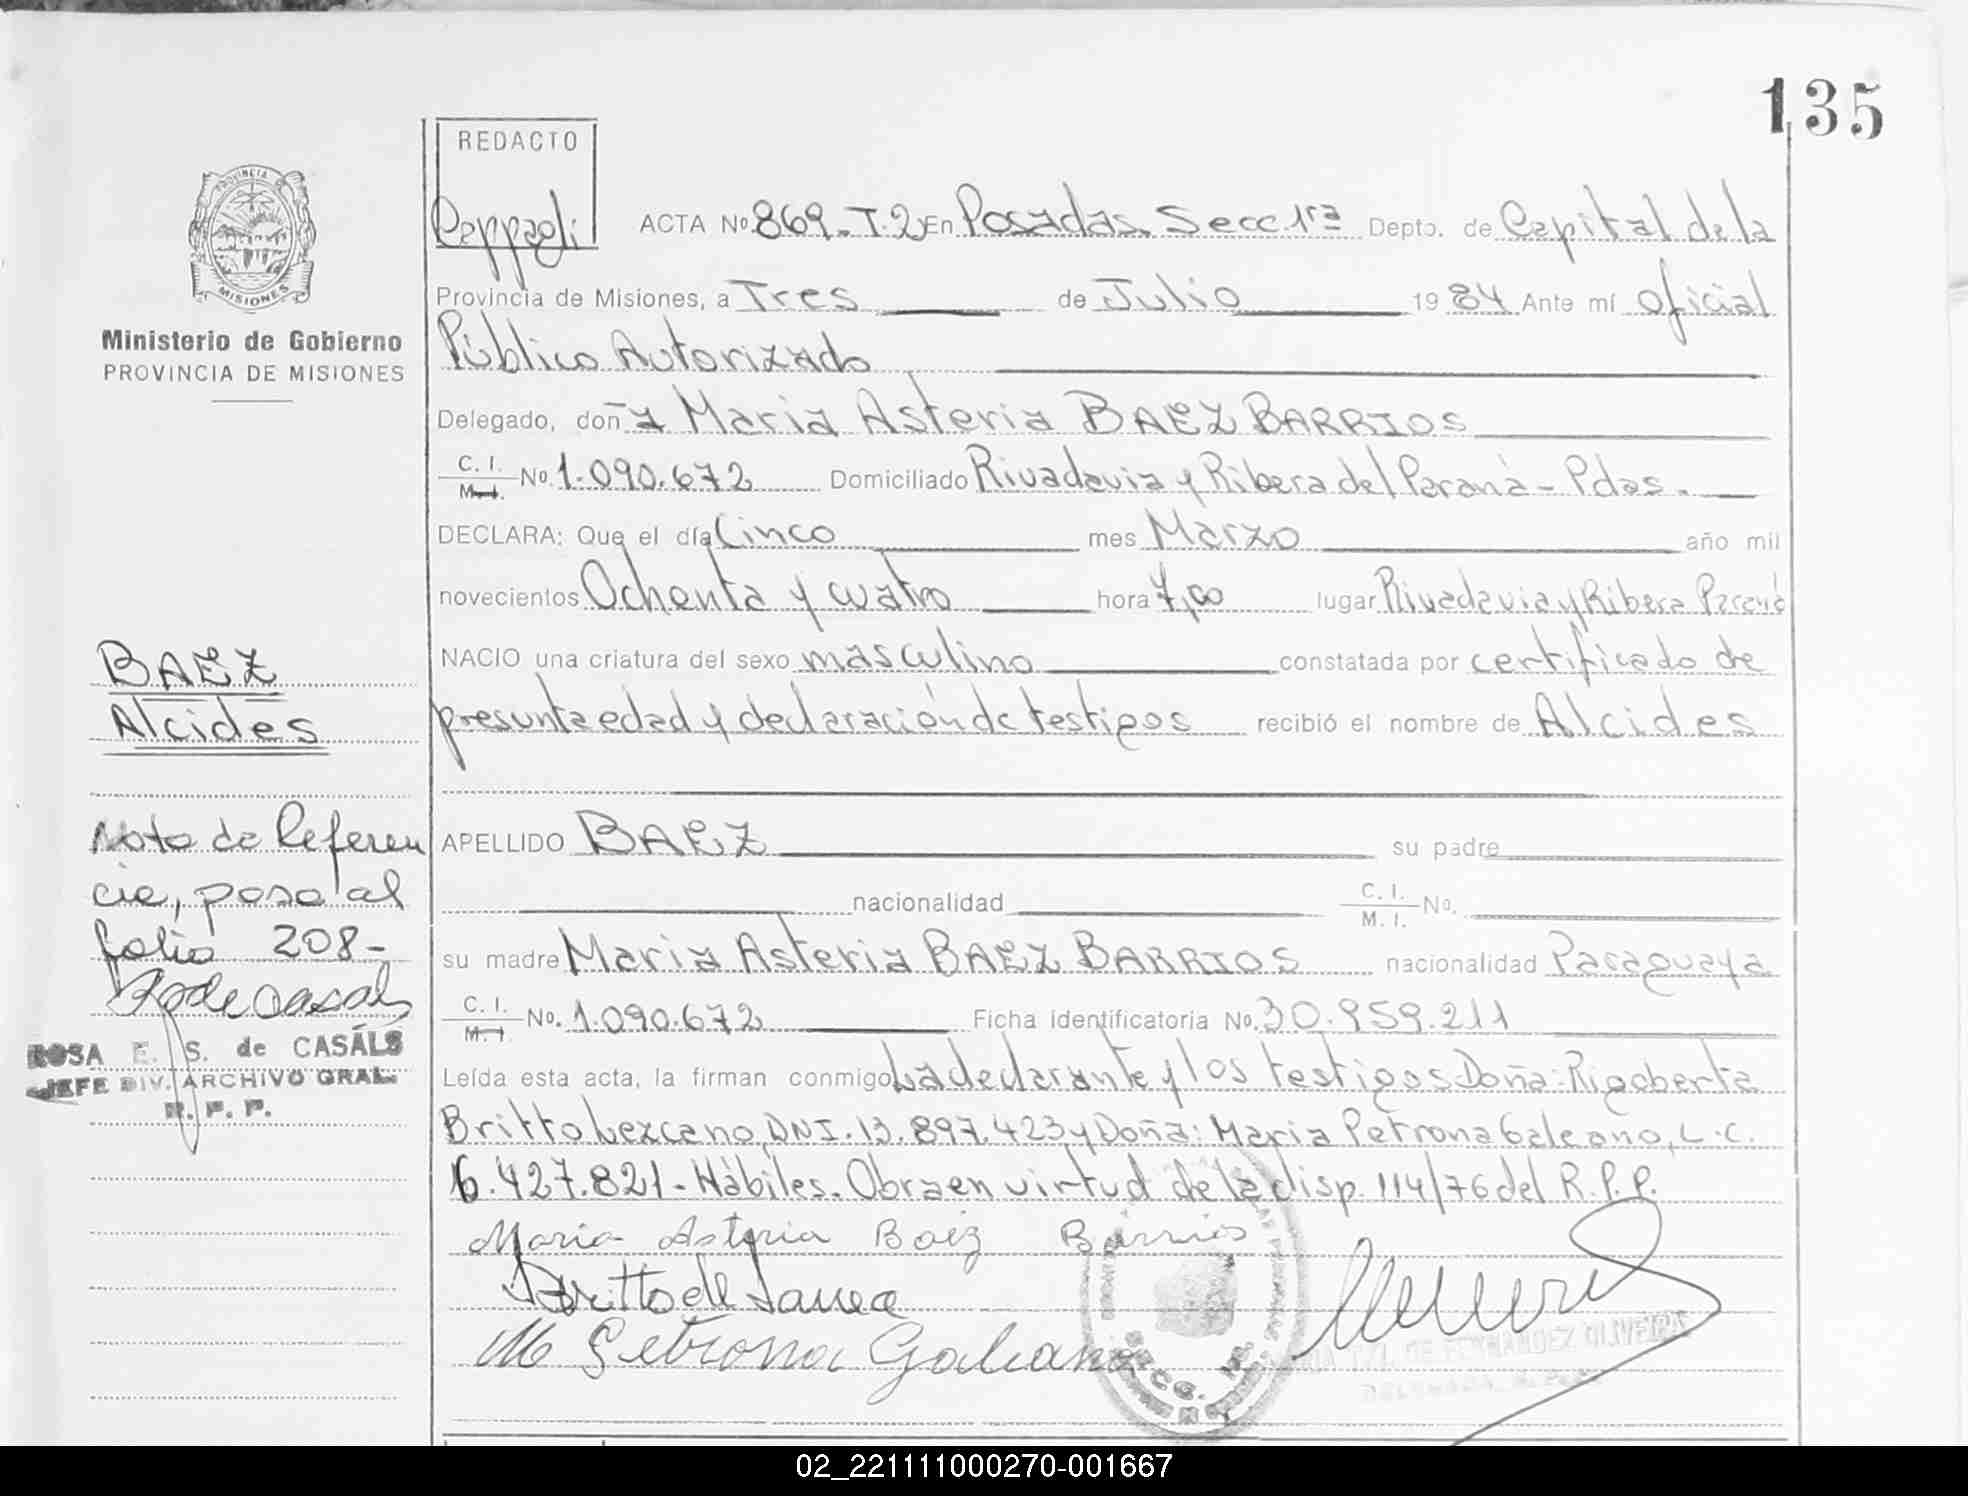 135
REDACTO
Peppagli
PROVINCIA
MISIONES
Ministerio de Gobierno
PROVINCIA DE MISIONES
ACTA Nº 869-T.2 En Posadas Secc. 1ra Depto. de Capital de la
Provincia de Misiones, a Tres de Julio 1984 Ante mí oficial
Público Autorizado
Delegado, doña María Asteria BAEZ BARRIOS
C. I. M. I. Nº 1.090.672 Domiciliado Rivadavia y Ribera del Paraná - Pdas.
DECLARA: Que el día Cinco mes Marzo año mil
novecientos Ochenta y cuatro hora 7,00 lugar Rivadavia y Ribera Paraná
NACIO una criatura del sexo masculino constatada por certificado de
presunta edad y declaración de testigos recibió el nombre de Alcides
APELLIDO BAEZ su padre
nacionalidad C. I. M. I. Nº.
su madre María Asteria BAEZ BARRIOS nacionalidad Paraguaya
C. I. M. I. Nº. 1.090.672 Ficha identificatoria Nº. 30.959.211
Leída esta acta, la firman conmigo La declarante y los testigos Doña: Rigoberta
Britto Lezcano, DNI. 13.897.423 y Doña: María Petrona Galeano, L.C.
6.427.821 - Hábiles. Obra en virtud de la disp. 114/76 del R.P.P.
Maria Asteria Baez Barrios
Britto de
M Petrona Galeano
DE FERNANDEZ OLIVEIRA
BAEZ
Alcides
Nota de Referen
cia, pasa al
folio 208-
R de Casals
ROSA E. S. de CASALS
JEFE DIV. ARCHIVO GRAL.
R. P. P.
02_221111000270-001667